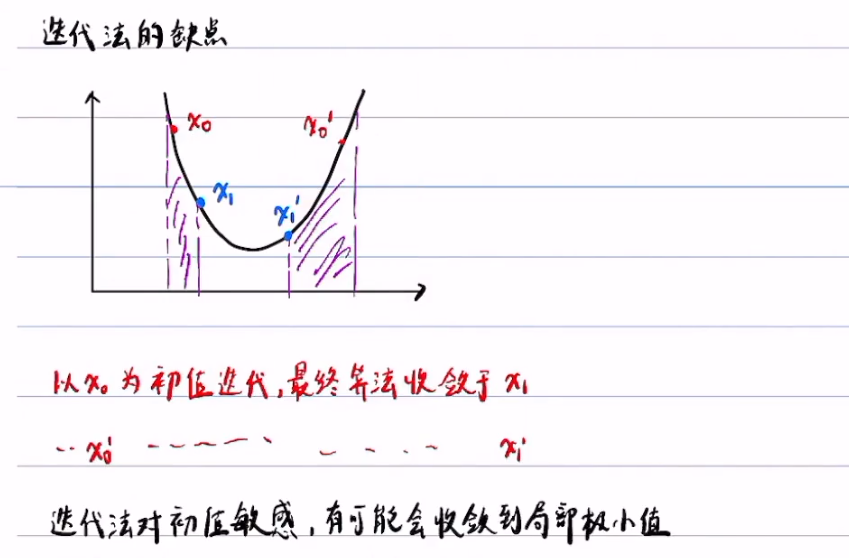 迭代法的缺点
x₀ x₀'
x₁ x₁'
以x₀为初值迭代,最终算法收敛于 x₁
x₀' x₁'
迭代法对初值敏感,有可能会收敛到局部极小值